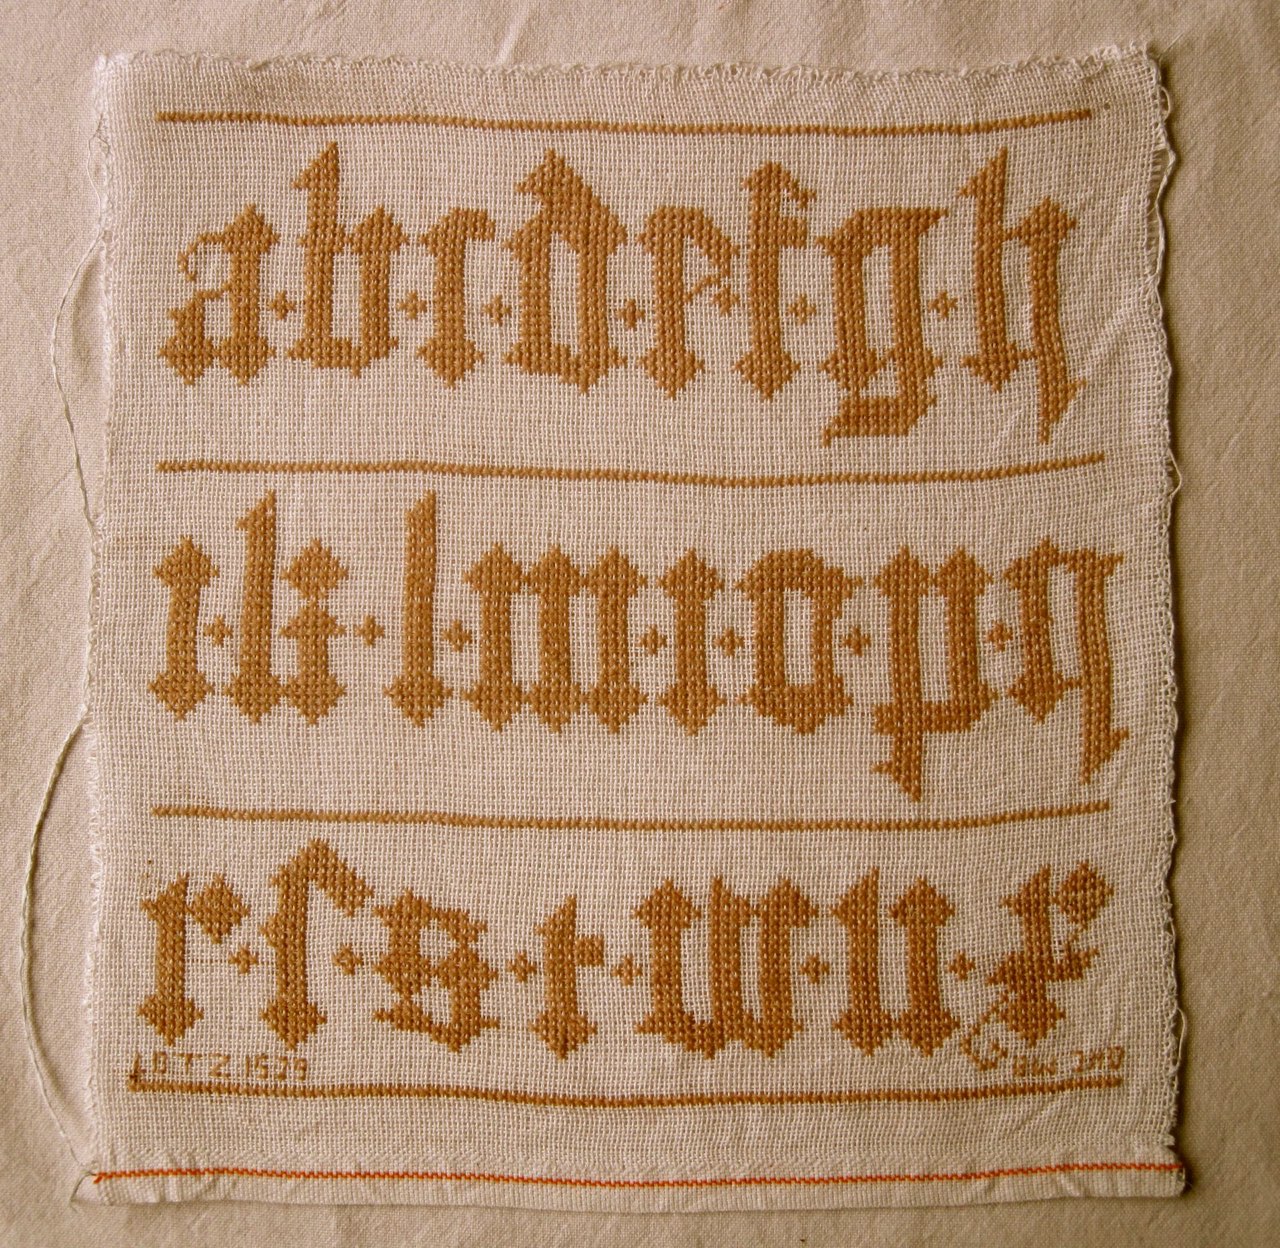 a·b·c·d·e·f·g·h
i·k·l·m·i·o·p·q
r·ſ·s·t·w·u·x
LOTZ 1529